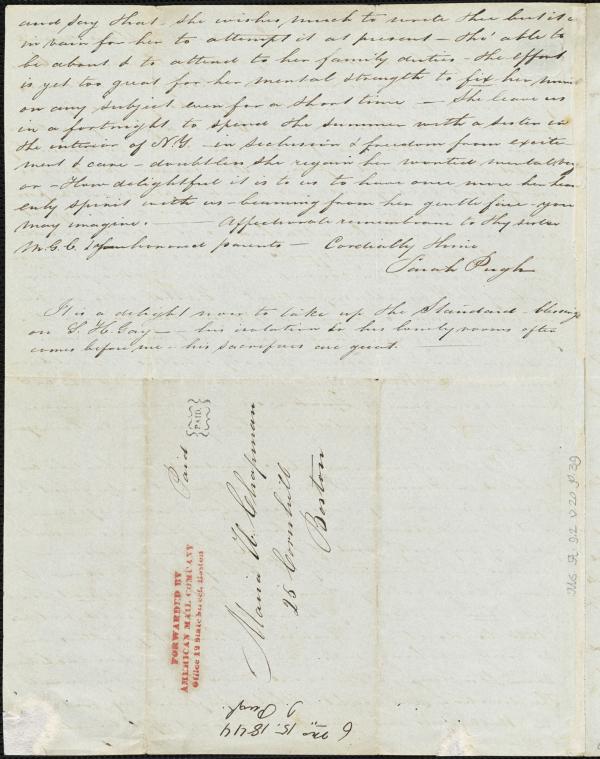 and say that she wishes much to write thee but it is
in vain for her to attempt it at present - tho' able to
be about & to attend to her family duties - the effort
is yet too great for her mental strength to fix her mind
on any subject even for a short time - She leaves us
in a fortnight to spend the summer with a sister in
the interior of N.Y. - in seclusion & freedom from excite
ment & care - doubtless she regain her wonted mental vig
or - How delightful it is to us to have once more her heav
enly spirit with us - beaming from her gentle face - you
may imagine. - Affectionate remembrance to thy sister
M. G. C. & honored parents - Cordially thine
Sarah Pugh
It is a delight now to take up the Standard - blessings
on S. H. Gay - his isolation in his lonely rooms often
comes before me - his sacrifices are great.
Paid
PAID
FORWARDED BY
AMERICAN MAIL COMPANY
Office 12 State Street, Boston
Maria W. Chapman
25 Cornhill
Boston
6 15. 1844
S. Pugh.
Ms. A. 9.2 v. 20 p. 39